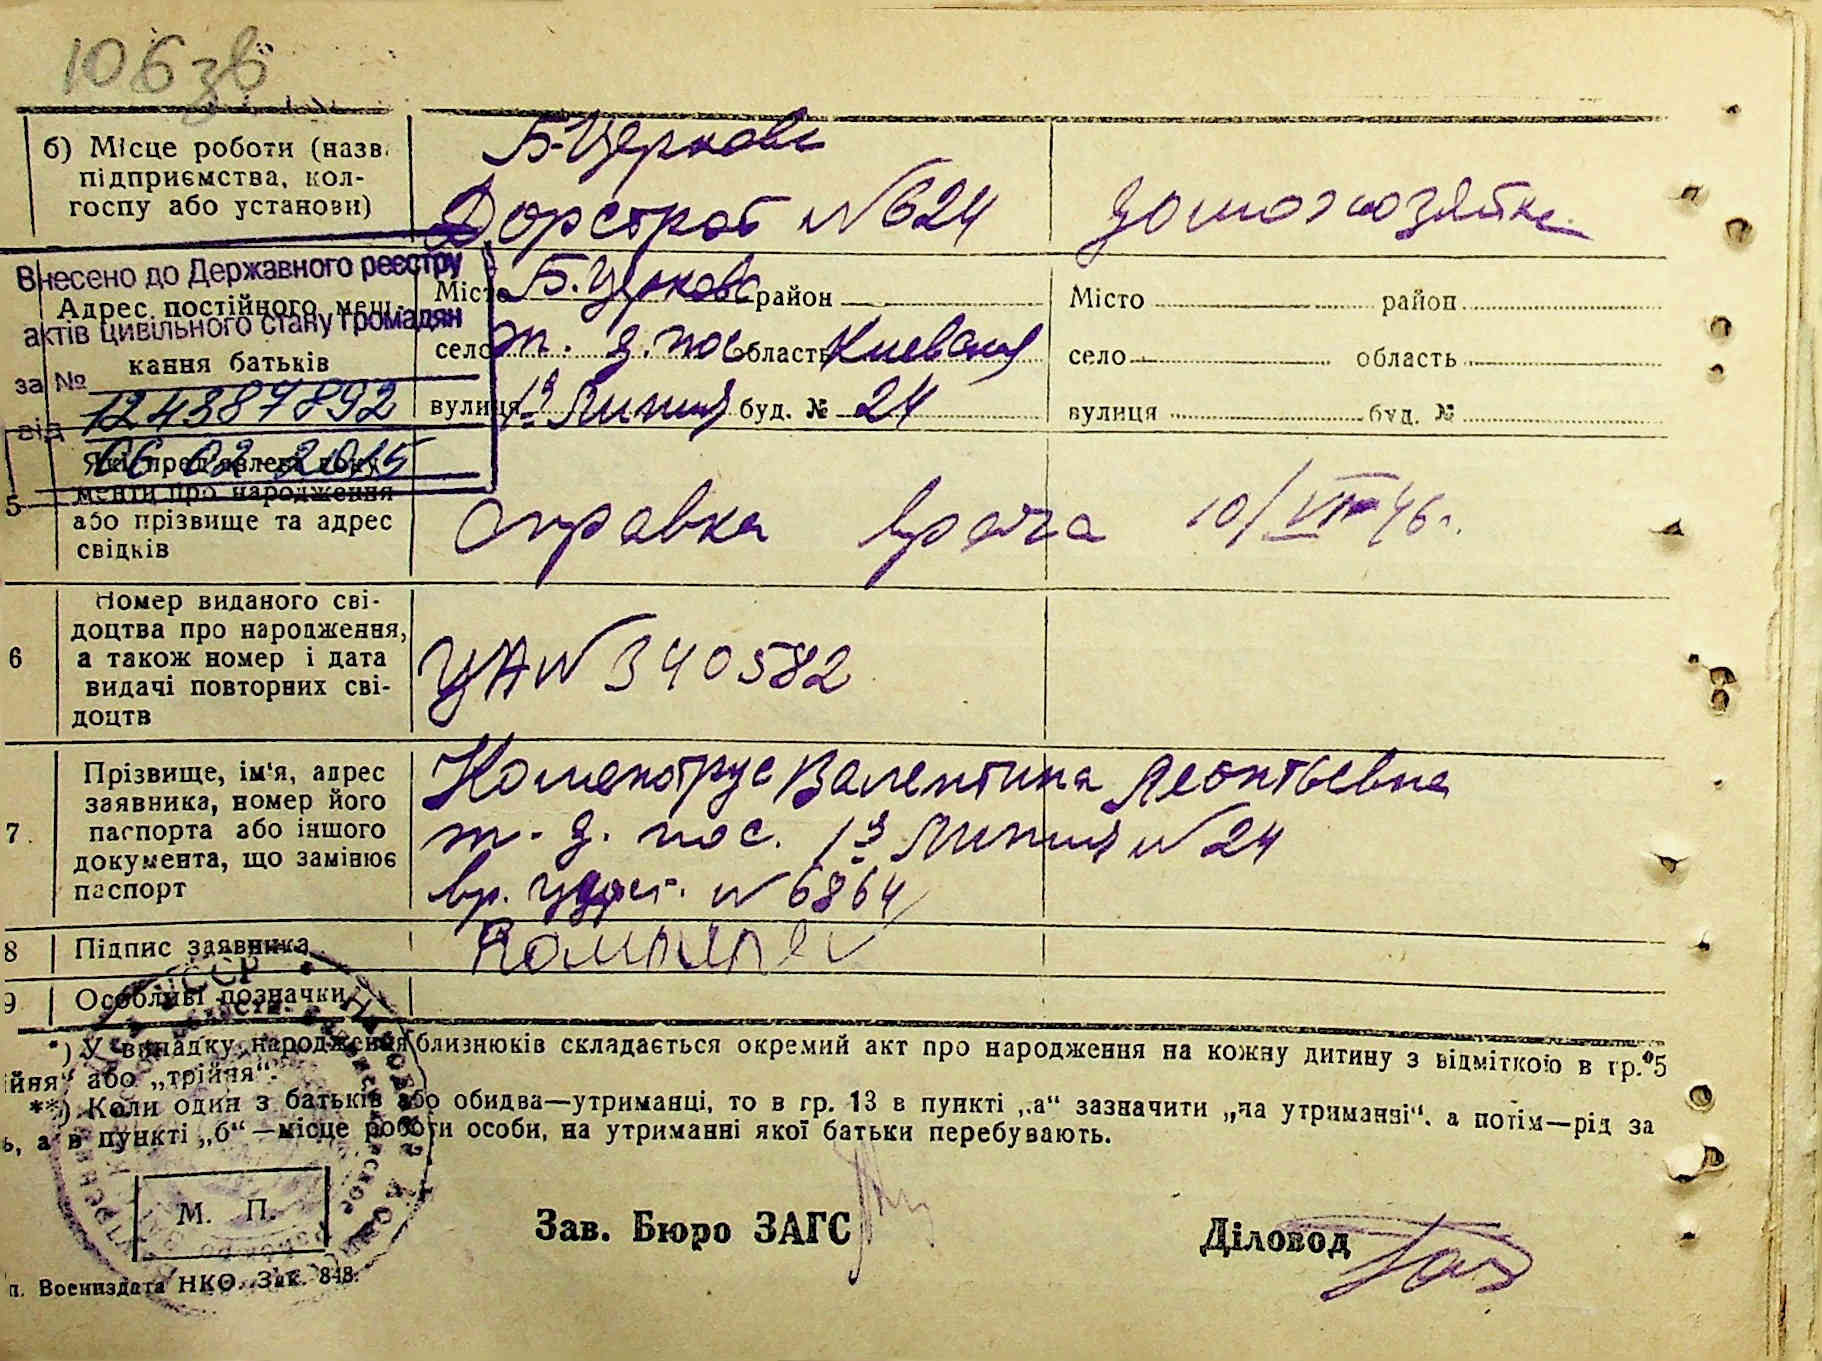 106зв
б) Місце роботи (назв.
підприємства, кол-
госпу або установи)
Б-Церковь
Дорстрой №624
домохозяйка
Внесено до Державного реєстру
актів цивільного стану громадян
за № 124387892
від 06 02 2015
Адрес постійного меш-
кання батьків
Місто Б. Церковь район
село ж. д. пос область Киевская
вулиця 1я Линия буд. № 24
Місто район
село область
вулиця буд. №
5
Які пред'явлені доку
менти про народження
або прізвище та адрес
свідків
справка врача 10/VII 46 г.
6
Номер виданого сві-
доцтва про народження,
а також номер і дата
видачі повторних сві-
доцтв
УА № 340582
7.
Прізвище, ім'я, адрес
заявника, номер його
паспорта або іншого
документа, що замінює
паспорт
Валентина Леонтьевна
ж. д. пос. 1я Линия № 24
вр. удост. № 6864
8 Підпис заявника
9 Особливі позначки
*) У випадку народження близнюків складається окремий акт про народження на кожну дитину з відміткою в гр. 5
ійня" або „трійня".
**) Коли один з батьків або обидва—утриманці, то в гр. 13 в пункті „а" зазначити „на утриманні", а потім—рід за
ь, а в пункті „б"—місце роботи особи, на утриманні якої батьки перебувають.
М. П.
Зав. Бюро ЗАГС
Діловод
п. Воениздата НКО. Зак. 848.